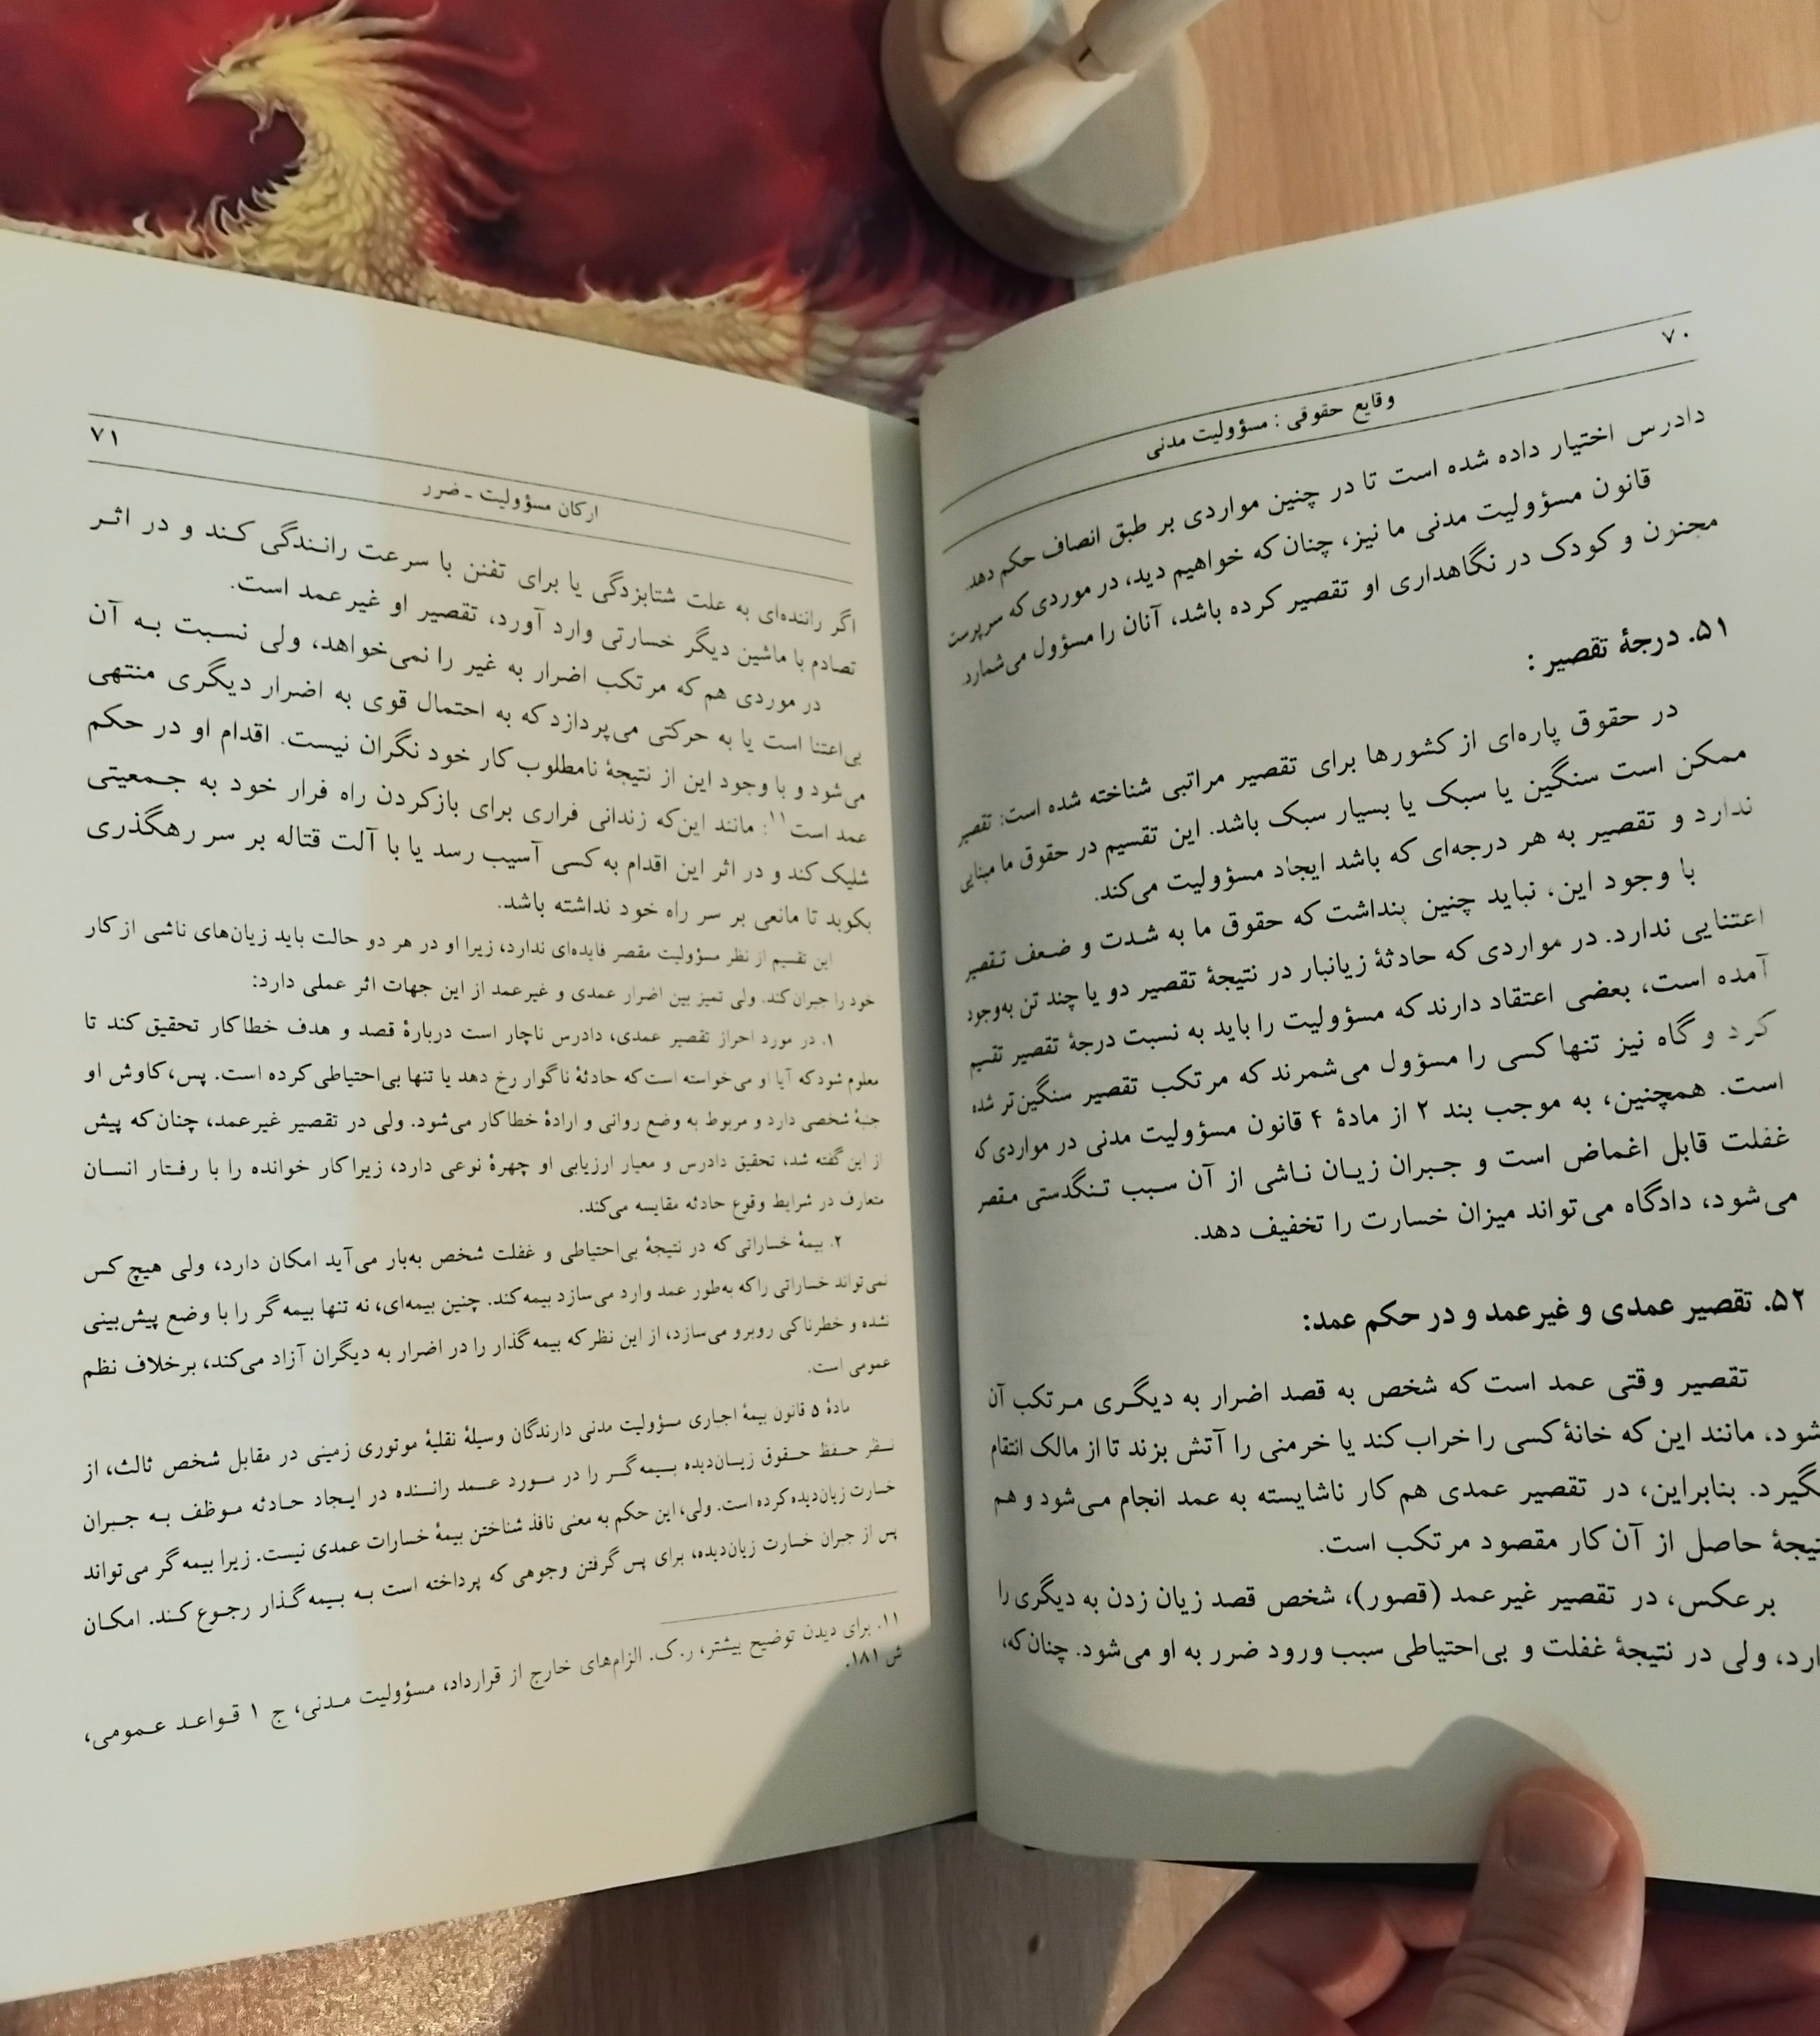 ۷۰
وقایع حقوقی : مسؤولیت مدنی
دادرس اختیار داده شده است تا در چنین مواردی بر طبق انصاف حکم دهد.
قانون مسؤولیت مدنی ما نیز، چنان‌که خواهیم دید، در موردی که سرپرست
مجنون و کودک در نگاهداری او تقصیر کرده باشد، آنان را مسؤول می‌شمارد.
۵۱. درجهٔ تقصیر :
در حقوق پاره‌ای از کشورها برای تقصیر مراتبی شناخته شده است: تقصیر
ممکن است سنگین یا سبک یا بسیار سبک باشد. این تقسیم در حقوق ما مبنایی
ندارد و تقصیر به هر درجه‌ای که باشد ایجاد مسؤولیت می‌کند.
با وجود این، نباید چنین پنداشت که حقوق ما به شدت و ضعف تقصیر
اعتنایی ندارد. در مواردی که حادثهٔ زیانبار در نتیجهٔ تقصیر دو یا چند تن به‌وجود
آمده است، بعضی اعتقاد دارند که مسؤولیت را باید به نسبت درجهٔ تقصیر تقسیم
کرد و گاه نیز تنها کسی را مسؤول می‌شمرند که مرتکب تقصیر سنگین‌تر شده
است. همچنین، به موجب بند ۲ از مادهٔ ۴ قانون مسؤولیت مدنی در مواردی که
غفلت قابل اغماض است و جبران زیان ناشی از آن سبب تنگدستی مقصر
می‌شود، دادگاه می‌تواند میزان خسارت را تخفیف دهد.
۵۲. تقصیر عمدی و غیرعمد و در حکم عمد:
تقصیر وقتی عمد است که شخص به قصد اضرار به دیگری مرتکب آن
شود، مانند این که خانهٔ کسی را خراب کند یا خرمنی را آتش بزند تا از مالک انتقام
گیرد. بنابراین، در تقصیر عمدی هم کار ناشایسته به عمد انجام می‌شود و هم
یجهٔ حاصل از آن کار مقصود مرتکب است.
برعکس، در تقصیر غیرعمد (قصور)، شخص قصد زیان زدن به دیگری را
ارد، ولی در نتیجهٔ غفلت و بی‌احتیاطی سبب ورود ضرر به او می‌شود. چنان‌که،
۷۱
ارکان مسؤولیت ـ ضرر
اگر راننده‌ای به علت شتابزدگی یا برای تفنن با سرعت رانندگی کند و در اثر
تصادم با ماشین دیگر خسارتی وارد آورد، تقصیر او غیرعمد است.
در موردی هم که مرتکب اضرار به غیر را نمی‌خواهد، ولی نسبت به آن
بی‌اعتنا است یا به حرکتی می‌پردازد که به احتمال قوی به اضرار دیگری منتهی
می‌شود و با وجود این از نتیجهٔ نامطلوب کار خود نگران نیست. اقدام او در حکم
عمد است۱۱: مانند این‌که زندانی فراری برای بازکردن راه فرار خود به جمعیتی
شلیک کند و در اثر این اقدام به کسی آسیب رسد یا با آلت قتاله بر سر رهگذری
بکوبد تا مانعی بر سر راه خود نداشته باشد.
این تقسیم از نظر مسؤولیت مقصر فایده‌ای ندارد، زیرا او در هر دو حالت باید زیان‌های ناشی از کار
خود را جبران کند. ولی تمیز بین اضرار عمدی و غیرعمد از این جهات اثر عملی دارد:
۱. در مورد احراز تقصیر عمدی، دادرس ناچار است دربارهٔ قصد و هدف خطاکار تحقیق کند تا
معلوم شود که آیا او می‌خواسته است که حادثهٔ ناگوار رخ دهد یا تنها بی‌احتیاطی کرده است. پس، کاوش او
جنبهٔ شخصی دارد و مربوط به وضع روانی و ارادهٔ خطاکار می‌شود. ولی در تقصیر غیرعمد، چنان‌که پیش
از این گفته شد، تحقیق دادرس و معیار ارزیابی او چهرهٔ نوعی دارد، زیرا کار خوانده را با رفتار انسان
متعارف در شرایط وقوع حادثه مقایسه می‌کند.
۲. بیمهٔ خساراتی که در نتیجهٔ بی‌احتیاطی و غفلت شخص به‌بار می‌آید امکان دارد، ولی هیچ کس
نمی‌تواند خساراتی را که به‌طور عمد وارد می‌سازد بیمه کند. چنین بیمه‌ای، نه تنها بیمه‌گر را با وضع پیش‌بینی
نشده و خطرناکی روبرو می‌سازد، از این نظر که بیمه‌گذار را در اضرار به دیگران آزاد می‌کند، برخلاف نظم
عمومی است.
مادهٔ ۵ قانون بیمهٔ اجباری مسؤولیت مدنی دارندگان وسیلهٔ نقلیهٔ موتوری زمینی در مقابل شخص ثالث، از
نظر حفظ حقوق زیان‌دیده بیمه‌گر را در مورد عمد راننده در ایجاد حادثه موظف به جبران
خسارت زیان‌دیده کرده است. ولی، این حکم به معنی نافذ شناختن بیمهٔ خسارات عمدی نیست. زیرا بیمه‌گر می‌تواند
پس از جبران خسارت زیان‌دیده، برای پس گرفتن وجوهی که پرداخته است به بیمه‌گذار رجوع کند. امکان
۱۱. برای دیدن توضیح بیشتر، ر.ک. الزام‌های خارج از قرارداد، مسؤولیت مدنی، ج ۱ قواعد عمومی،
ش ۱۸۱.